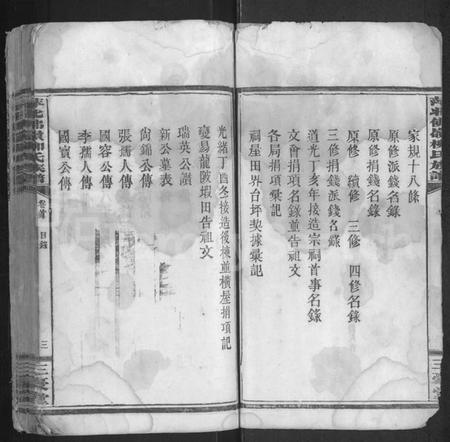 家規十八條
原修派錢名錄
原修捐錢名錄
原修 續修 三修 四修名錄
三修捐錢派錢名錄
道光丁亥年接造宗祠首事名錄
文會捐項名錄並告祖文
各局捐項彙記
祠屋田界台坪契據彙記
光緒丁酉冬接造後棟並橫屋捐項記
龍陂塅田告祖文
瑞英公讚
新公墓表
尚錦公傳
張孺人傳
國容公傳
李孺人傳
國賓公傳
卷首 目錄
三